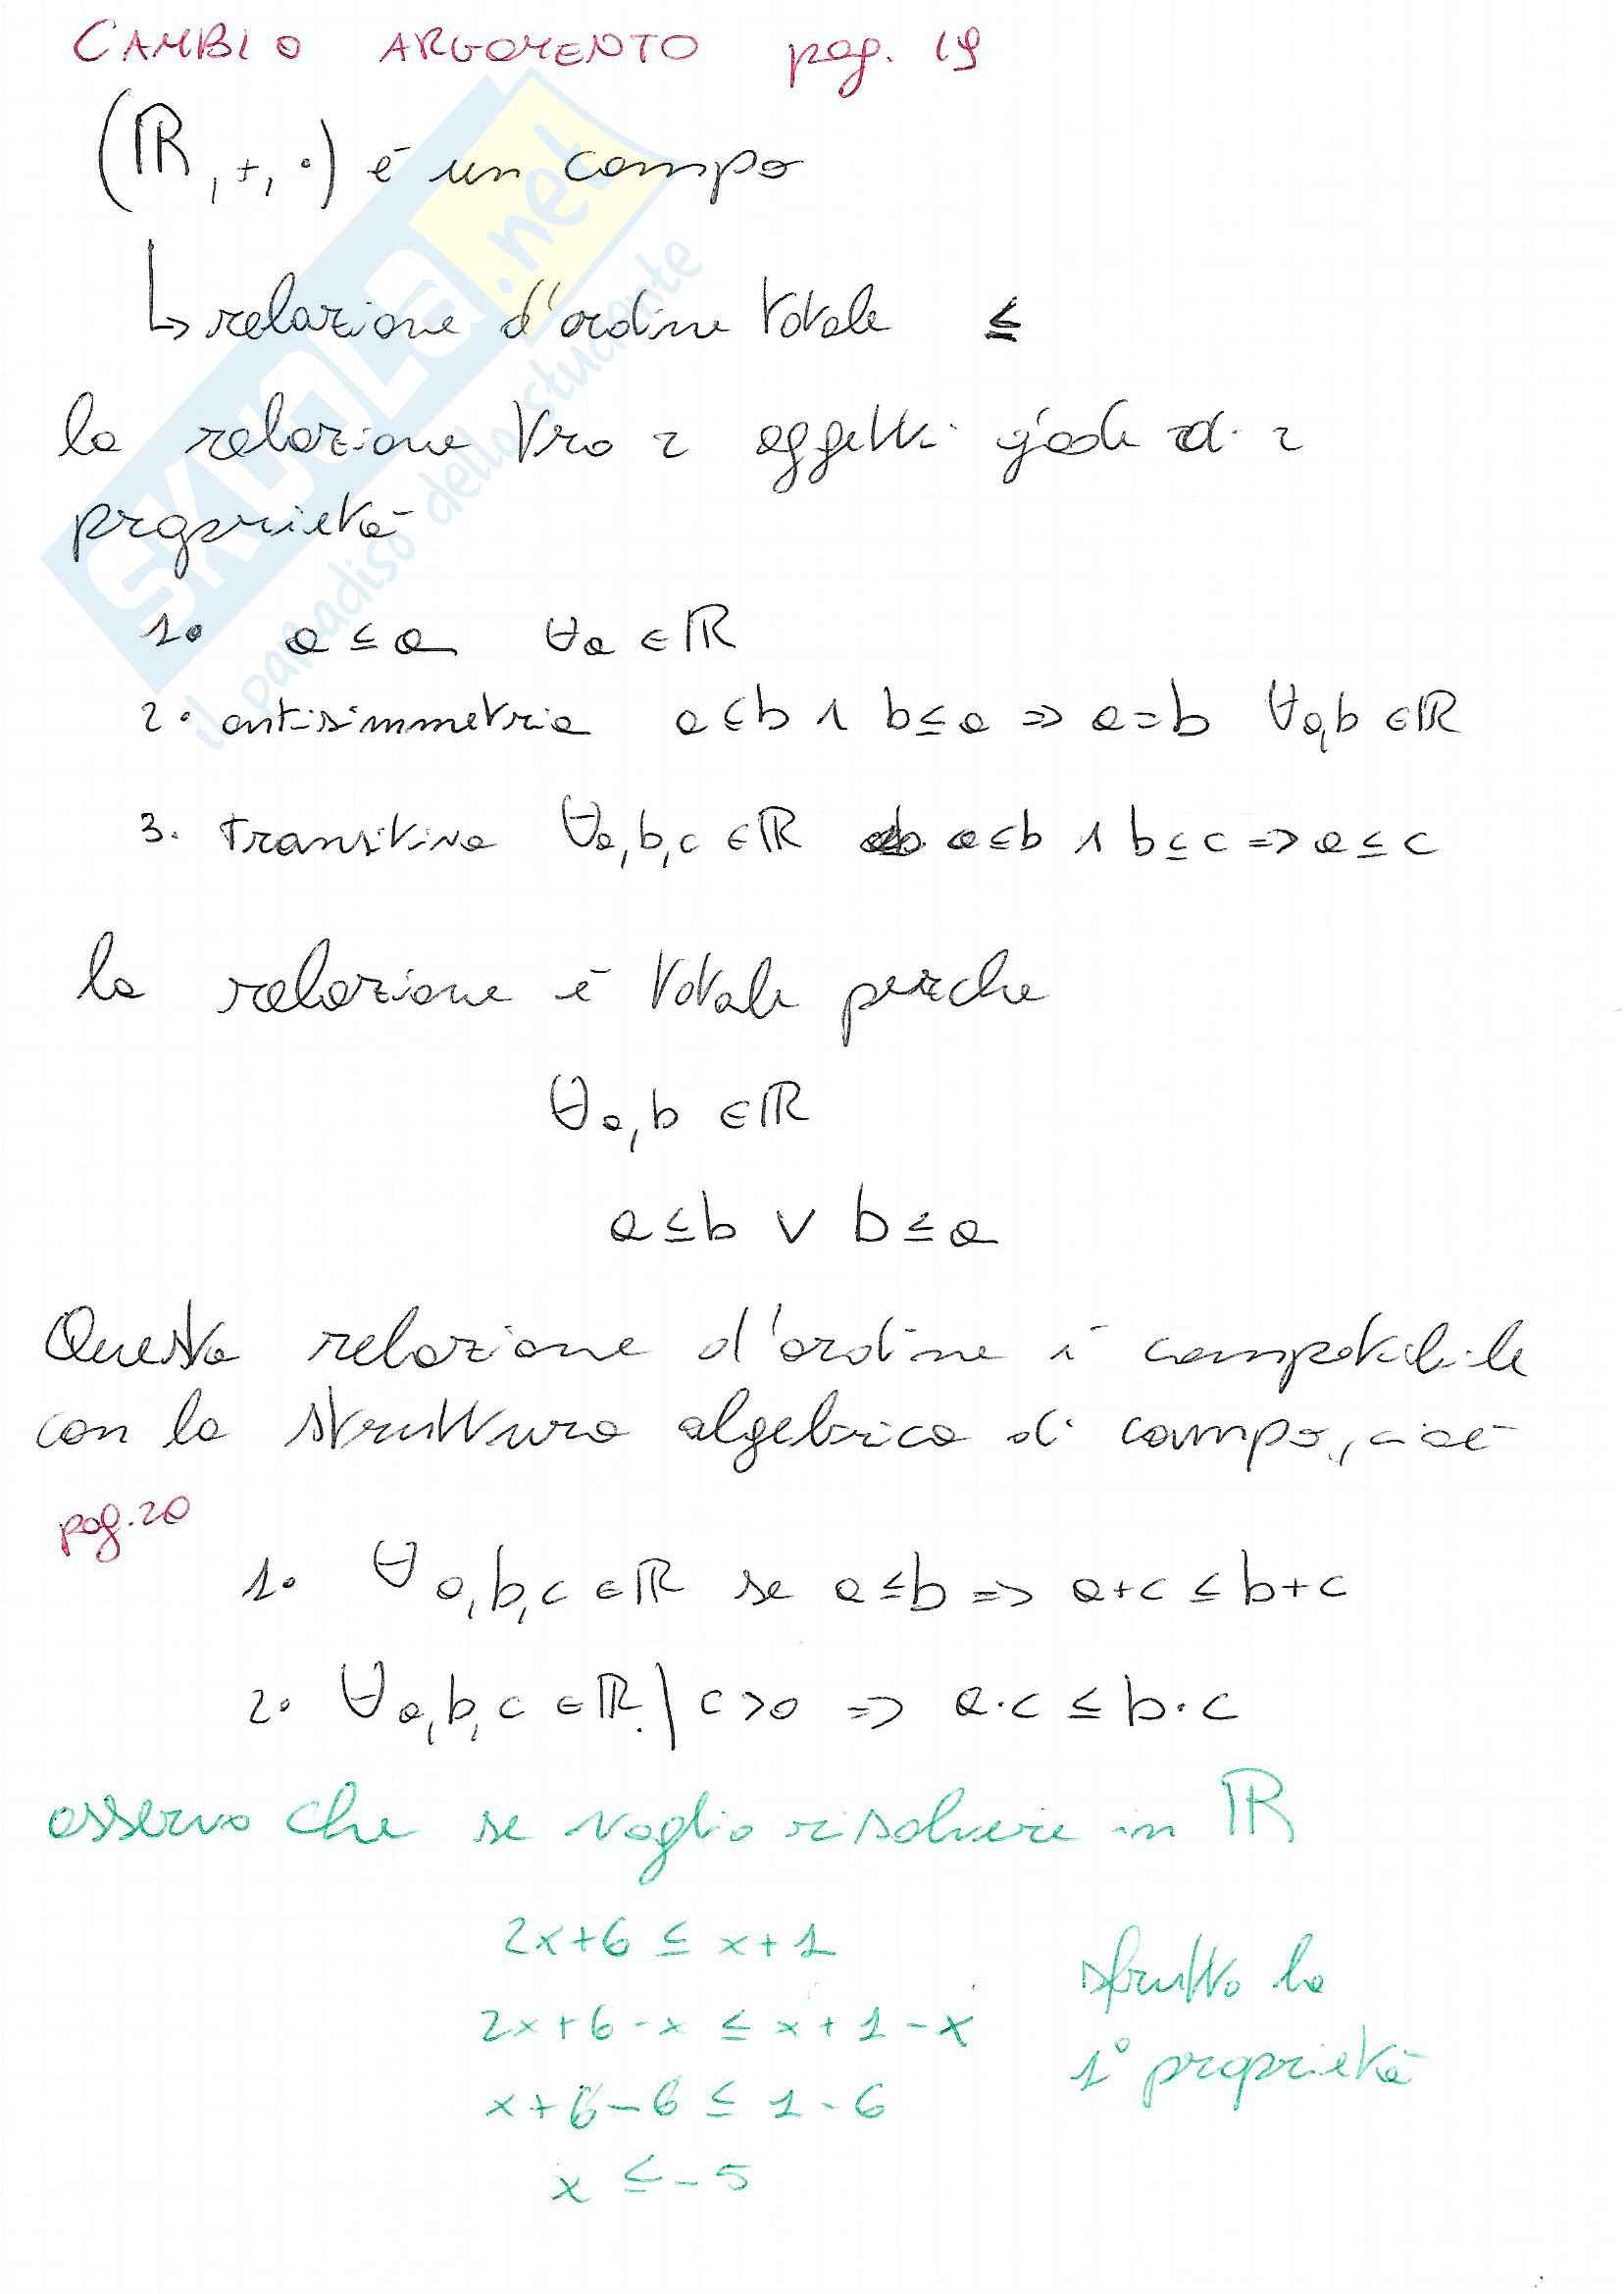 CAMBIO ARGOMENTO pag. 19
(ℝ, +, ·) è un campo
↳ relazione d'ordine totale ≤
la relazione tra 2 oggetti gode di 2
proprietà
1. a ≤ a ∀a ∈ ℝ
2. antisimmetria a ≤ b ∧ b ≤ a ⇒ a = b ∀a,b ∈ ℝ
3. transitiva ∀a,b,c ∈ ℝ a ≤ b ∧ b ≤ c ⇒ a ≤ c
la relazione è totale perche
∀a,b ∈ ℝ
a ≤ b ∨ b ≤ a
Questa relazione d'ordine è compatibile
con la struttura algebrica di campo, cioè
pag. 20
1. ∀a,b,c ∈ ℝ se a ≤ b ⇒ a+c ≤ b+c
2. ∀a,b,c ∈ ℝ | c > 0 ⇒ a·c ≤ b·c
osservo che se voglio risolvere in ℝ
2x+6 ≤ x+1
2x+6-x ≤ x+1-x
sfrutto la
1° proprietà
x+6-6 ≤ 1-6
x ≤ -5
SKUOLA.net
il paradiso dello studente